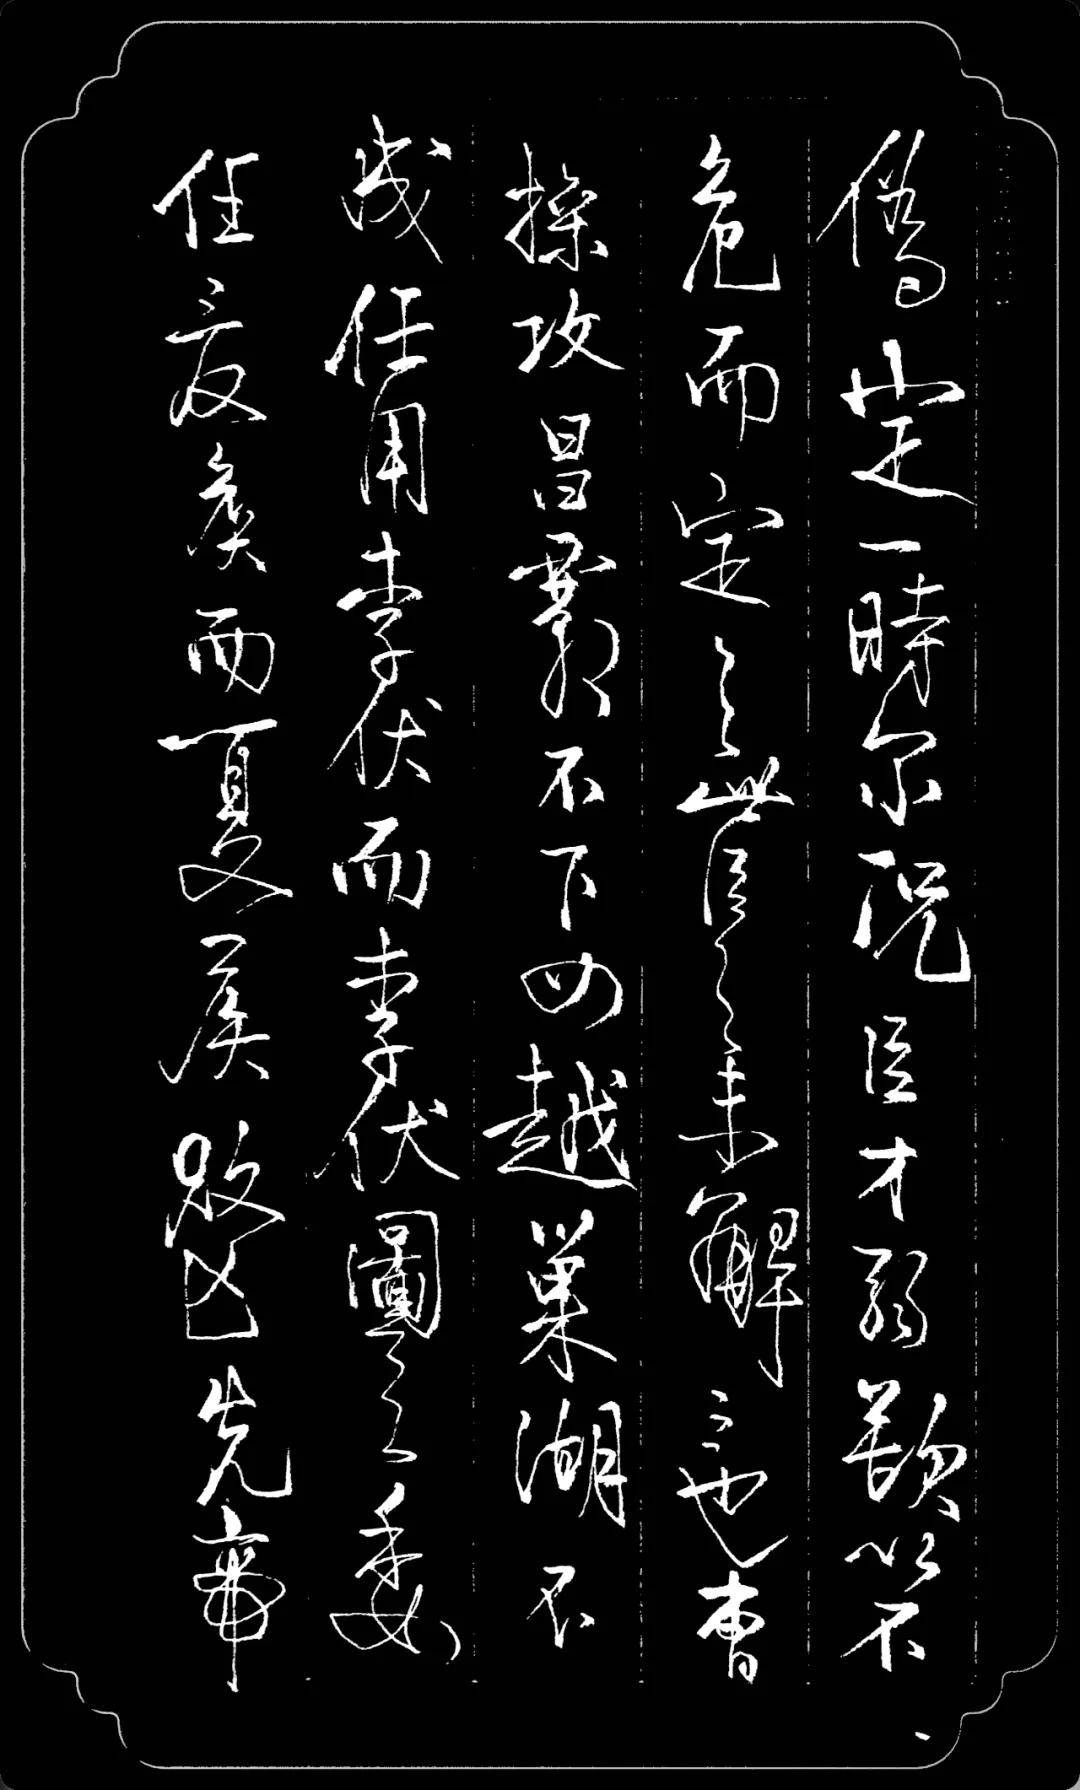 偽定一時尔況臣才弱欲以不
危而定之此臣之未解三也曹
操攻昌霸不下四越巢湖不
成任用李伏而李伏圖之委
任夏侯而夏侯敗亡先帝